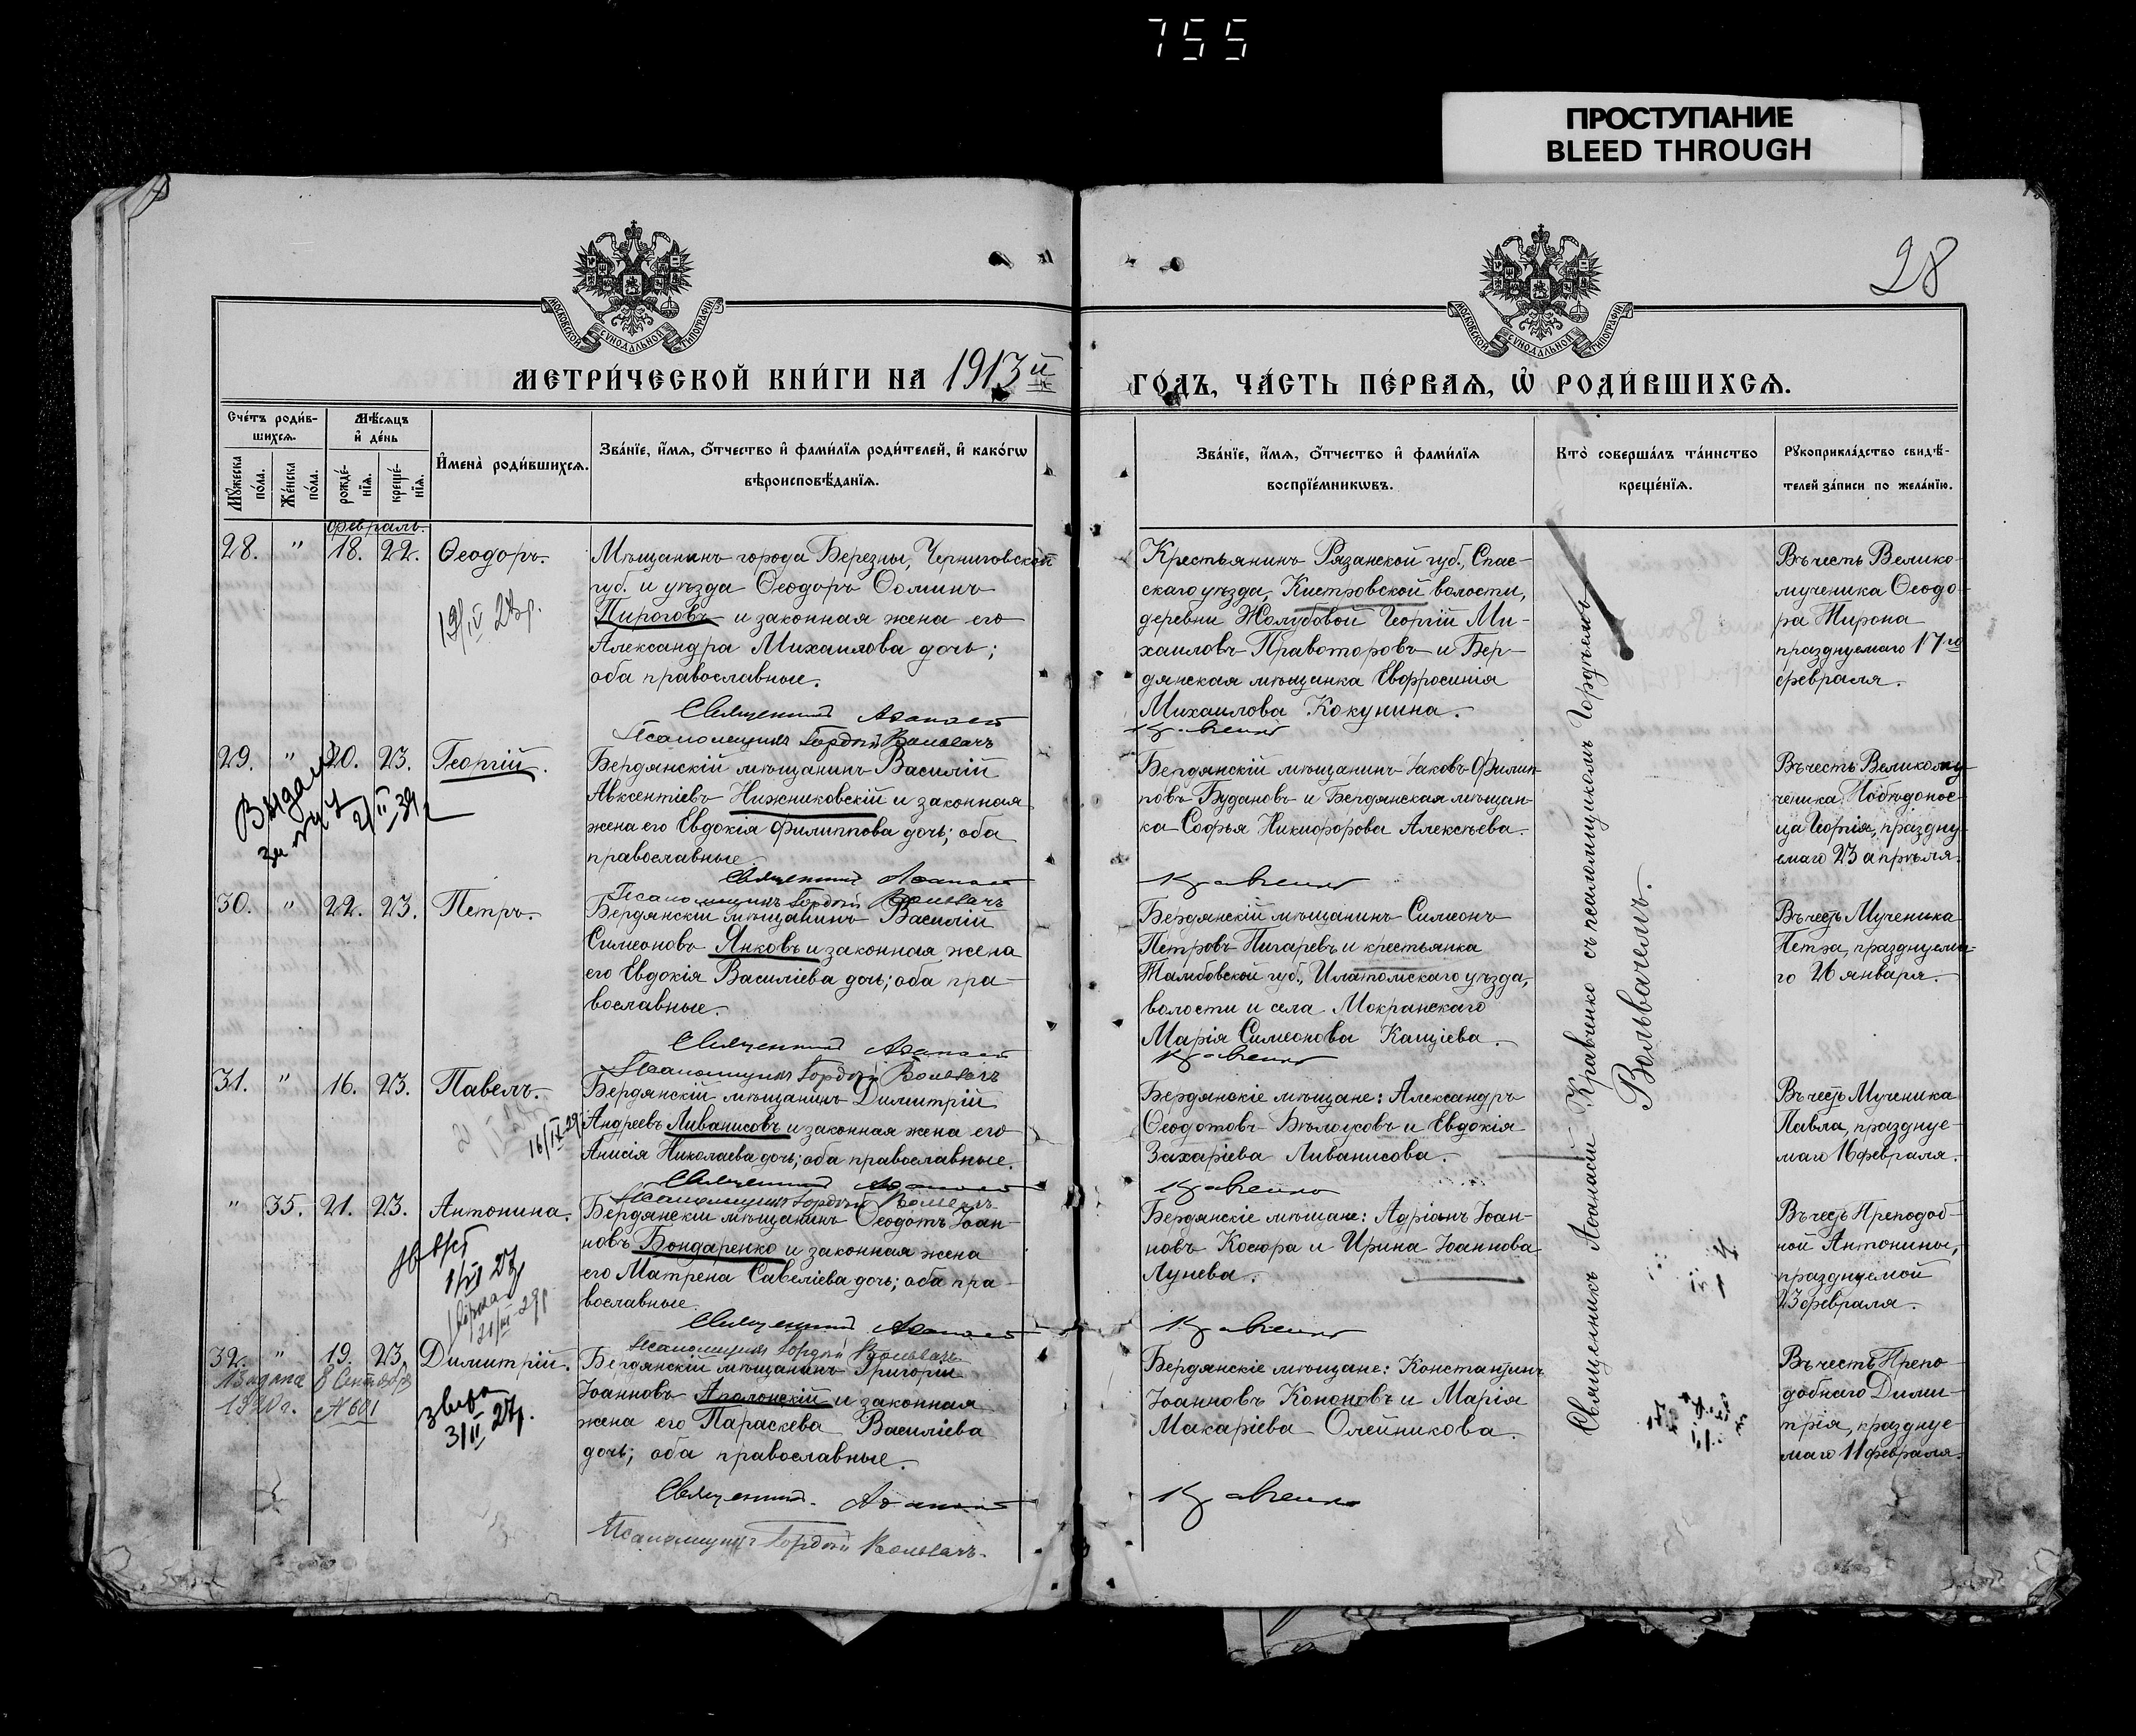 755
ПРОСТУПАНИЕ
BLEED THROUGH
28
МОСКОВСКОЙ СѴНОДАЛЬНОЙ ТИПОГРАФІИ
МОСКОВСКОЙ СѴНОДАЛЬНОЙ ТИПОГРАФІИ
МЕТРИ́ЧЕСКОЙ КНИ́ГИ НА 1913й
ГО́ДЪ, ЧА́СТЬ ПЕ́РВАѦ, Ѡ РОДИ́ВШИХСѦ.
Сче́тъ роди́вшихсѧ.
Мѣ́сѧцъ и де́нь
Мꙋ́жеска по́ла.
Же́нска по́ла.
рожде́нїѧ.
креще́нїѧ.
И҆мена̀ роди́вшихсѧ.
Зва́нїе, и҆́мѧ, ѻ҆́тчество и҆ фами́лїѧ роди́телей, и҆ како́гѡ
вѣроисповѣ́данїѧ.
Зва́нїе, и҆́мѧ, ѻ҆́тчество и҆ фами́лїѧ
воспрїе́мникѡвъ.
Кто̀ соверша́лъ та́инство
креще́нїѧ.
Рꙋкоприкла́дство свидѣ́-
телей за́писи по жела́нїю.
Февраль.
28. " 18. 22. Ѳеодоръ.
Мѣщанинъ города Березны, Черниговской
губ. и уѣзда Ѳеодоръ Ѳоминъ
Пироговъ и законная жена его
Александра Михаилова дочь;
оба православные.
Священникъ Аѳанасій
Псаломщикъ Гордій Вольвачъ
Крестьянинъ Рязанской губ., Спас-
скаго уѣзда, Кистровской волости,
деревни Жолубовой Георгій Ми-
хаиловъ Правоторовъ и Бер-
дянская мѣщанка Евфросинія
Михаилова Кокунина.
Кравченко
Въ честь Велико-
мученика Ѳеодо-
ра Тирона
празднуемаго 17го
февраля.
29. " 20. 23. Георгій.
Выдан
21/II-39
Бердянскій мѣщанинъ Василій
Авксентіевъ Нижниковскій и законная
жена его Евдокія Филиппова дочь; оба
православные.
Священникъ Аѳанасій
Псаломщикъ Гордій Вольвачъ
Бердянскій мѣщанинъ Іаковъ Филип-
повъ Будановъ и Бердянская мѣщан-
ка Софья Никифорова Алексѣева.
Кравченко
Въ честь Великому-
ченика Побѣдонос-
ца Георгія, праздну-
емаго 23 апрѣля.
30. " 22. 23. Петръ.
Бердянскій мѣщанинъ Василій
Симеоновъ Янковъ и законная жена
его Евдокія Василіева дочь; оба пра-
вославные.
Священникъ Аѳанасій
Псаломщикъ Гордій Вольвачъ
Бердянскій мѣщанинъ Симеонъ
Петровъ Пигаревъ и крестьянка
Тамбовской губ., Илатомскаго уѣзда,
волости и села Мокранскаго
Марія Симеонова Кащіева.
Кравченко
Въ честь Мученика
Петра, празднуема-
го 26 января.
31. " 16. 23. Павелъ.
16/IX-29
Бердянскій мѣщанинъ Димитрій
Андреевъ Ливанисовъ и законная жена его
Анисія Николаева дочь; оба православные.
Священникъ Аѳанасій
Псаломщикъ Гордій Вольвачъ
Бердянскіе мѣщане: Александръ
Ѳеодотовъ Бѣлоусовъ и Евдокія
Захаріева Ливанисова.
Кравченко
Въ честь Мученика
Павла, празднуе-
маго 16 февраля.
" 35. 21. 23. Антонина.
Бердянскій мѣщанинъ Ѳеодотъ Іоан-
новъ Бондаренко и законная жена
его Матрена Савеліева дочь; оба пра-
вославные.
Священникъ Аѳанасій
Псаломщикъ Гордій Вольвачъ
Бердянскіе мѣщане: Адріанъ Іоан-
новъ Косюра и Ирина Іоаннова
Лунева.
Кравченко
Въ честь Преподоб-
ной Антонины,
празднуемой
23 февраля.
32. " 19. 23. Димитрій.
Выдана 8 Сентября
1920 г. № 601
3/II 27г.
Бердянскій мѣщанинъ Григорій
Іоанновъ Аполонскій и законная
жена его Параскева Василіева
дочь; оба православные.
Священникъ Аѳанасій
Псаломщикъ Гордій Вольвачъ.
Бердянскіе мѣщане: Константинъ
Іоанновъ Кононовъ и Марія
Макаріева Олейникова.
Кравченко
Въ честь Препо-
добнаго Дими-
трія, празднуе-
маго 11 февраля.
Священникъ Аѳанасій Кравченко съ псаломщикомъ Гордѣемъ
Вольвачемъ.